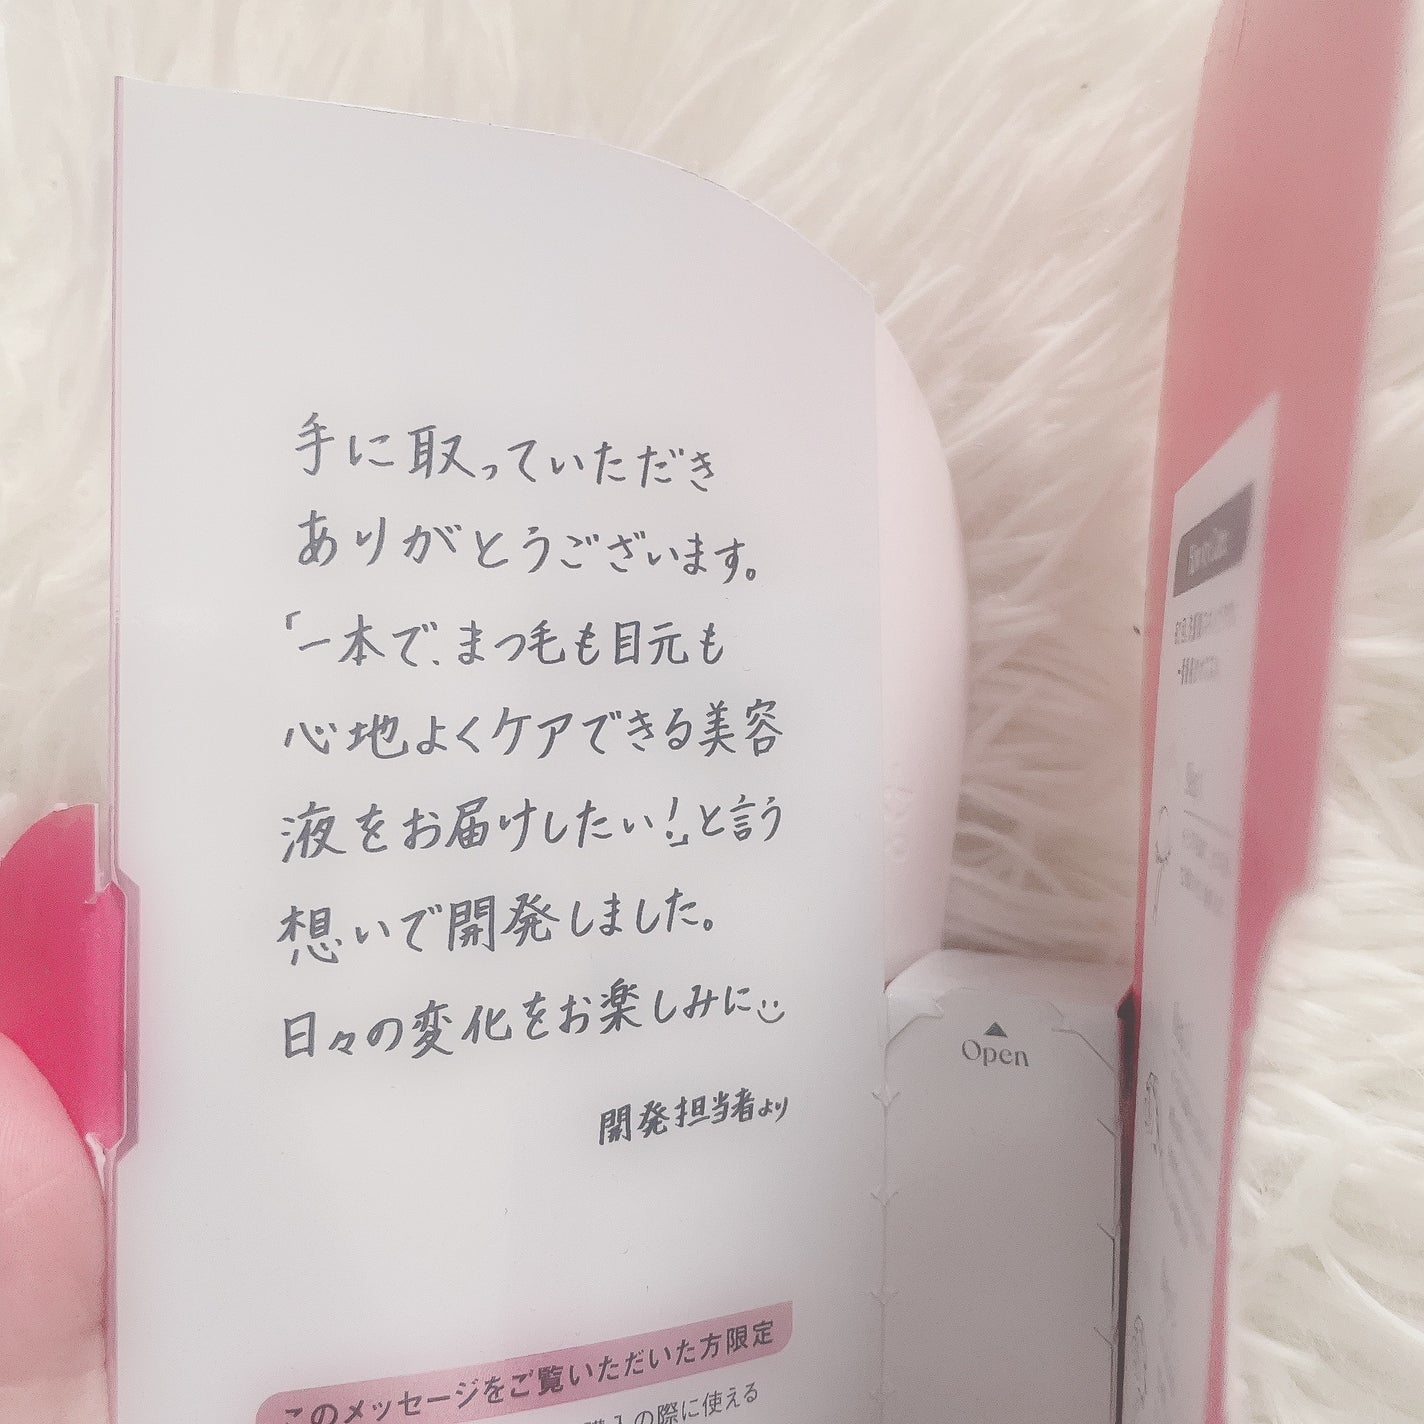 手に取っていただき
ありがとうございます。
「一本で、まつ毛も目元も
心地よくケアできる美容
液をお届けしたい!」と言う
想いで開発しました。
日々の変化をお楽しみに
開発担当者より
このメッセージをご覧いただいた方限定
の際に使える
Open